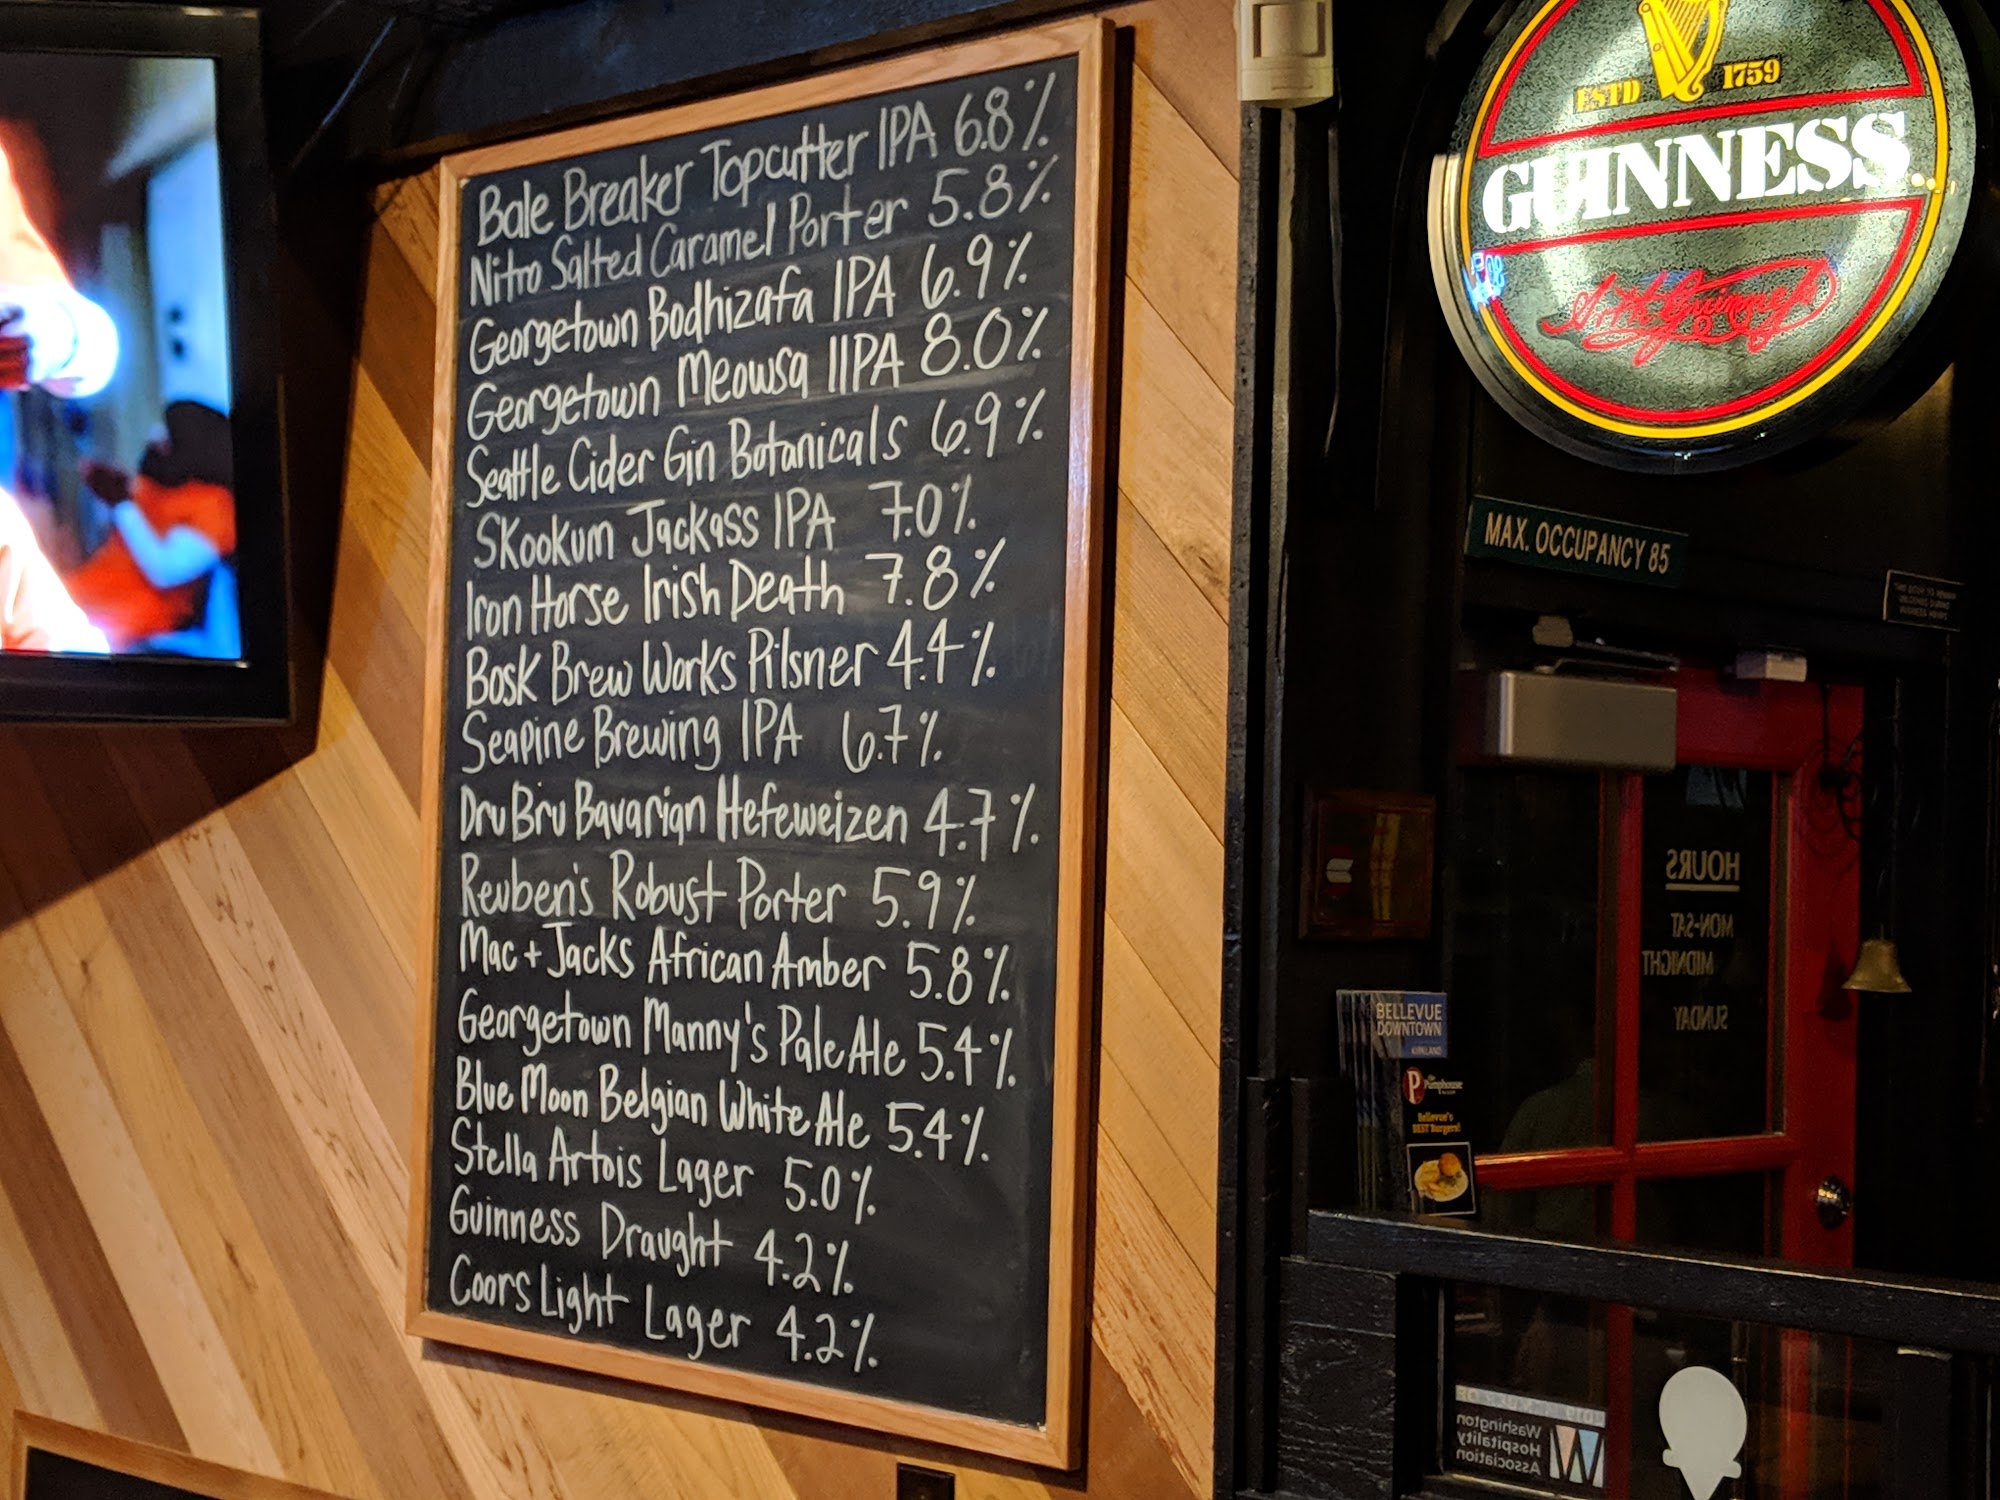 Bale Breaker Topcutter IPA 6.8%
Nitro Salted Caramel Porter 5.8%
Georgetown Bodhizafa IPA 6.9%
Georgetown Meowsa IIPA 8.0%
Seattle Cider Gin Botanicals 6.9%
Skookum Jackass IPA 7.0%
Iron Horse Irish Death 7.8%
Bosk Brew Works Pilsner 4.4%
Seapine Brewing IPA 6.7%
Dru Bru Bavarian Hefeweizen 4.7%
Reuben's Robust Porter 5.9%
Mac + Jacks African Amber 5.8%
Georgetown Manny's Pale Ale 5.4%
Blue Moon Belgian White Ale 5.4%
Stella Artois Lager 5.0%
Guinness Draught 4.2%
Coors Light Lager 4.2%
ESTD 1759
GUINNESS
MAX. OCCUPANCY 85
HOURS
MON-SAT
MIDNIGHT
SUNDAY
BELLEVUE
DOWNTOWN
KIRKLAND
Pumphouse
Bellevue's
BEST Burgers!
Washington
Hospitality
Association